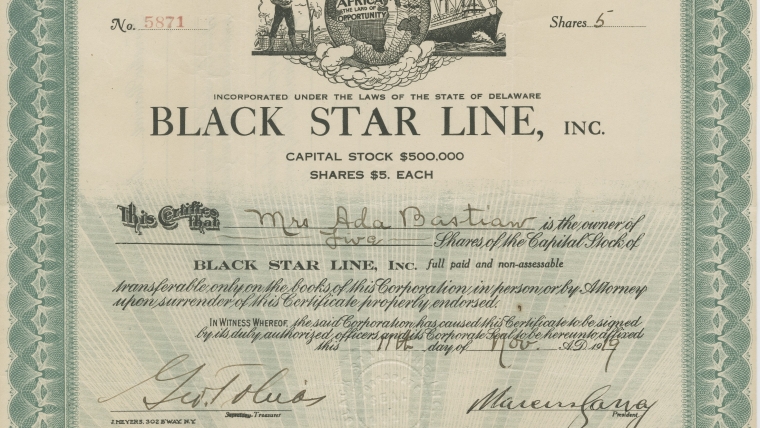 AFRICA
THE LAND OF
OPPORTUNITY
No. 5871
Shares 5
INCORPORATED UNDER THE LAWS OF THE STATE OF DELAWARE
BLACK STAR LINE, INC.
CAPITAL STOCK $500,000
SHARES $5. EACH
This Certifies that Mrs Ada Bastian is the owner of
Five Shares of the Capital Stock of
BLACK STAR LINE, INC. full paid and non-assessable
transferable only on the books of this Corporation, in person or by Attorney
upon surrender of this Certificate properly endorsed.
IN WITNESS WHEREOF, the said Corporation has caused this Certificate to be signed
by its duly authorized officers and its Corporate Seal to be hereunto affixed
this 11th day of Nov. A.D. 1919
Geo. Tobias
Marcus Garvey
Secretary-Treasurer
President.
J. MEYERS, 302 B'WAY. N.Y.